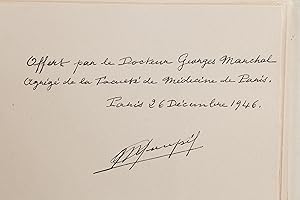 Offert par le Docteur Georges Marchal
agrégé de la Faculté de Médecine de Paris.
Paris 26 Décembre 1946.